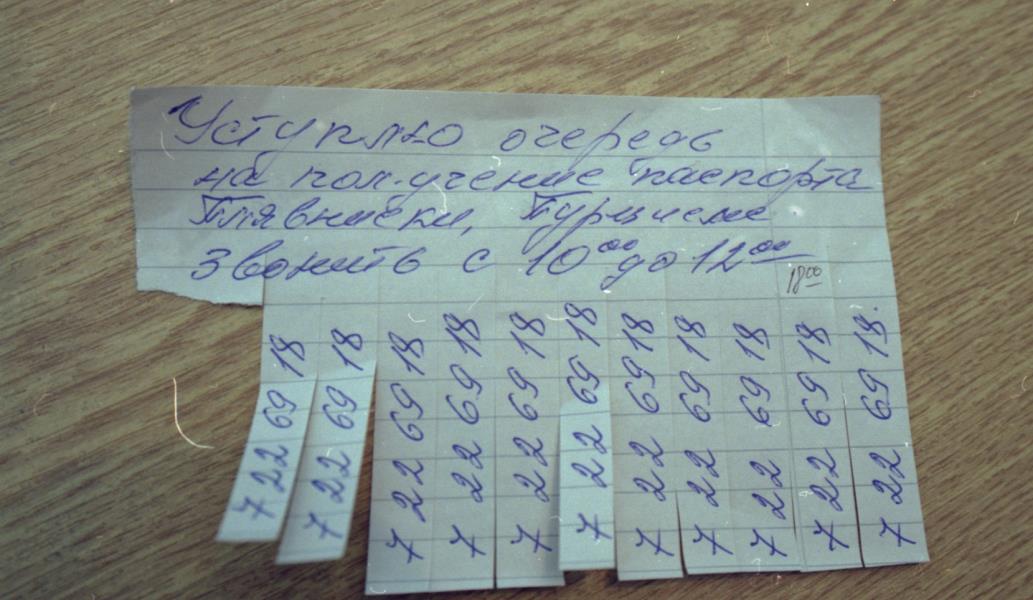 Уступлю очередь
на получение паспорта
Плявниеки, Пурциемс
Звонить с 10⁰⁰ до 12⁰⁰
18⁰⁰
7 22 69 18
7 22 69 18
7 22 69 18
7 22 69 18
7 22 69 18
7 22 69 18
7 22 69 18
7 22 69 18
7 22 69 18
7 22 69 18
7 22 69 18.